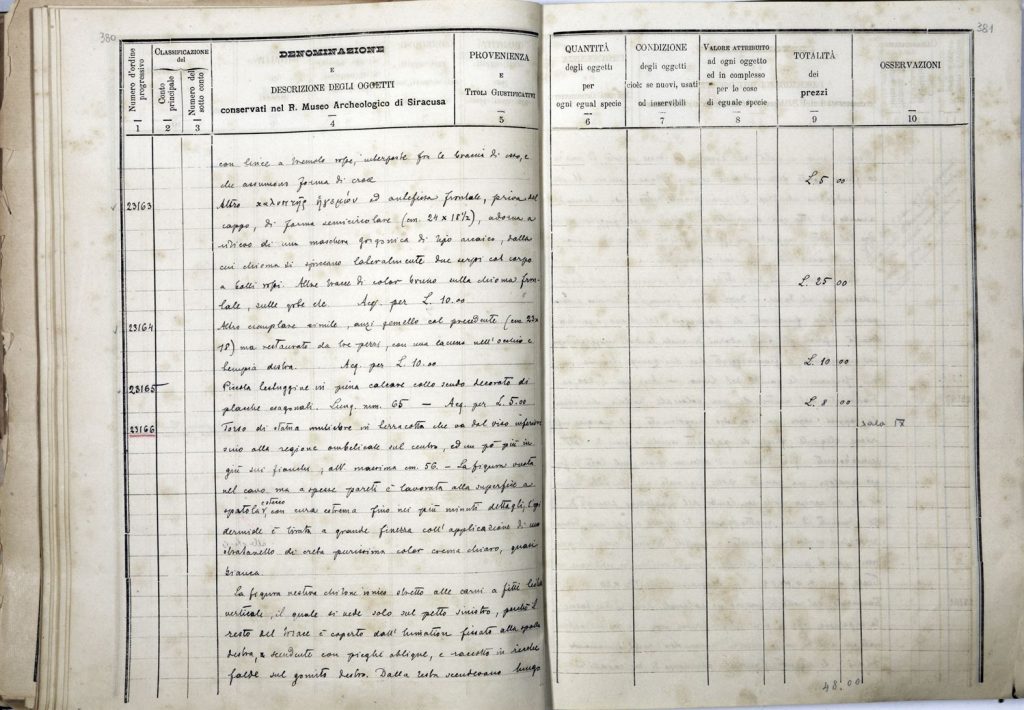 380
Numero d'ordine progressivo
Classificazione del
Conto principale
Numero del sotto conto
DENOMINAZIONE
E
DESCRIZIONE DEGLI OGGETTI
conservati nel R. Museo Archeologico di Siracusa
PROVENIENZA
E
Titoli Giustificativi
1 2 3 4 5
con lince a tremolo rosse, interposte fra le braccia di esso, e
che assumono forma di croce
23163 Altro καλυπτὴρ ἡγεμών ed antefissa frontale, priva del
cappo, di forma semicircolare (cm. 24 x 18 1/2), adorna a
rilievo di una maschera gorgonica di tipo arcaico, dalla
cui chioma si spiccano lateralmente due serpi col corpo
a balli rossi. Altre tracce di color bruno sulla chioma fron-
tale, sulle gote etc. Acq. per L. 10.00
23164 Altro esemplare simile, anzi gemello col precedente (cm 23 x
18) ma restaurato da tre pezzi, con una lacuna nell'occhio e
tempia destra. Acq. per L. 10.00
23165 Piccola testuggine in pietra calcare collo scudo decorato di
placche esagonali. Lung. mm. 65 — Acq. per L. 5.00
23166 Torso di statua muliebre in terracotta che va dal viso inferiore
sino alla regione ombelicale sul centro, ed un pò più in
giù sui fianchi, alt. massima cm. 56. – La figura vuota
nel cavo, ma a spesse pareti è lavorata alla superficie a
spatola, con cura estrema fino nei più minuti dettagli, l'epi
dermide è tirata a grande finezza coll'applicazione di uno
stratarello di creta purissima color crema chiaro, quasi
bianca.
La figura vestiva chitone ionico stretto alle carni a fitti
verticale, il quale si vede solo sul petto sinistro, perchè il
resto del torace è coperto dall'himation fissato alla spalla
destra, e scendente con pieghe oblique, e raccolto in
falde sul gomito destro. Dalla testa scendevano lungo
381
QUANTITÀ
degli oggetti
per
ogni egual specie
CONDIZIONE
degli oggetti
cioè: se nuovi, usati
od inservibili
Valore attribuito
ad ogni oggetto
ed in complesso
per le cose
di eguale specie
TOTALITÀ
dei
prezzi
OSSERVAZIONI
6 7 8 9 10
L. 5 00
L. 25 00
L. 10 00
L. 8 00
sala IX
48.00